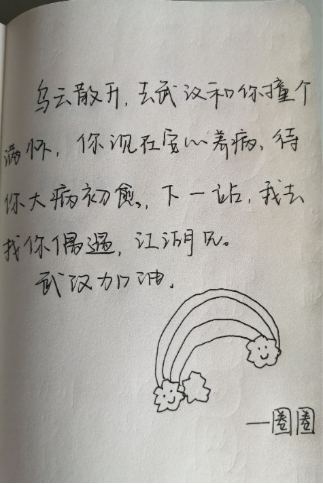 乌云散开，去武汉和你撞个
满怀，你现在安心养病，待
你大病初愈，下一站，我去
找你偶遇，江湖见。
武汉加油。
—圈圈